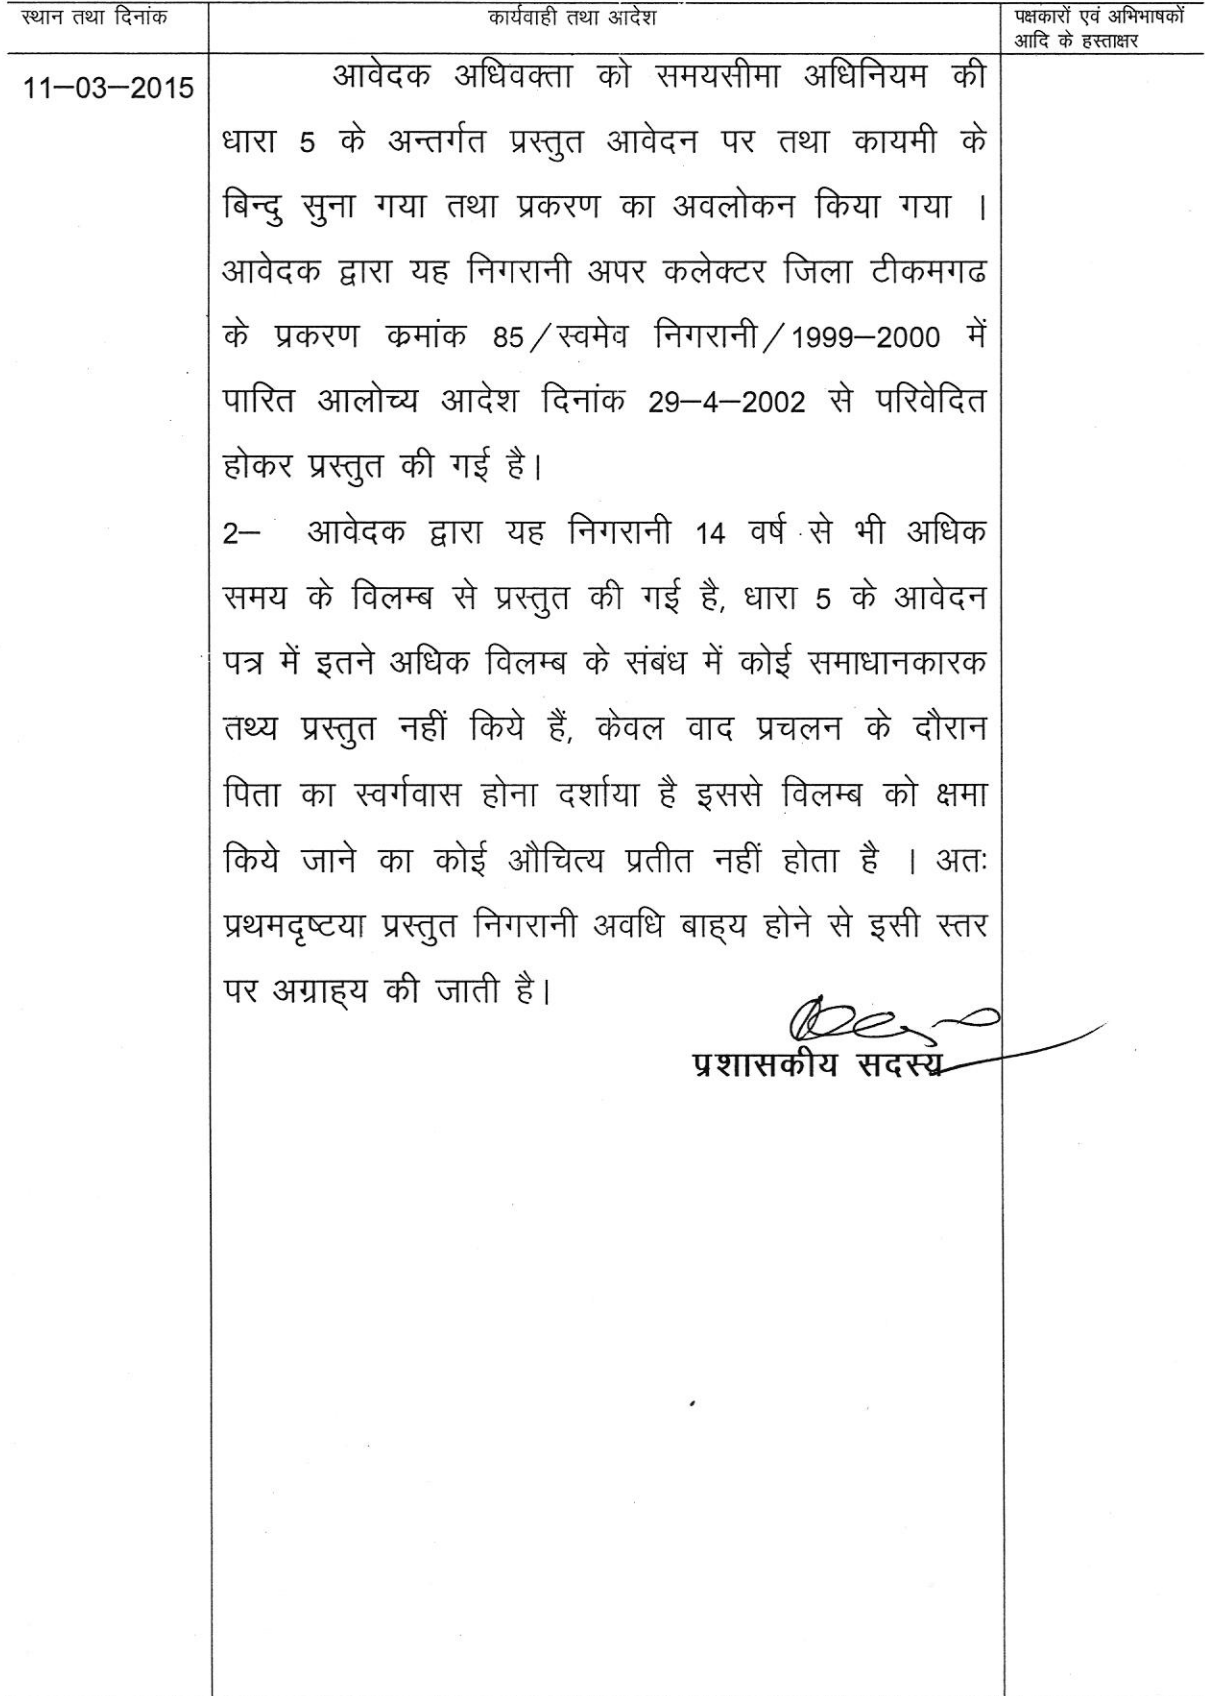 स्थान तथा दिनांक
कार्यवाही तथा आदेश
पक्षकारों एवं अभिभाषकों
आदि के हस्ताक्षर
11–03–2015
आवेदक अधिवक्ता को समयसीमा अधिनियम की
धारा 5 के अन्तर्गत प्रस्तुत आवेदन पर तथा कायमी के
बिन्दु सुना गया तथा प्रकरण का अवलोकन किया गया ।
आवेदक द्वारा यह निगरानी अपर कलेक्टर जिला टीकमगढ
के प्रकरण कमांक 85/स्वमेव निगरानी/1999–2000 में
पारित आलोच्य आदेश दिनांक 29–4–2002 से परिवेदित
होकर प्रस्तुत की गई है।
2– आवेदक द्वारा यह निगरानी 14 वर्ष से भी अधिक
समय के विलम्ब से प्रस्तुत की गई है, धारा 5 के आवेदन
पत्र में इतने अधिक विलम्ब के संबंध में कोई समाधानकारक
तथ्य प्रस्तुत नहीं किये हैं, केवल वाद प्रचलन के दौरान
पिता का स्वर्गवास होना दर्शाया है इससे विलम्ब को क्षमा
किये जाने का कोई औचित्य प्रतीत नहीं होता है । अतः
प्रथमदृष्टया प्रस्तुत निगरानी अवधि बाह्य होने से इसी स्तर
पर अग्राह्य की जाती है।
प्रशासकीय सदस्य